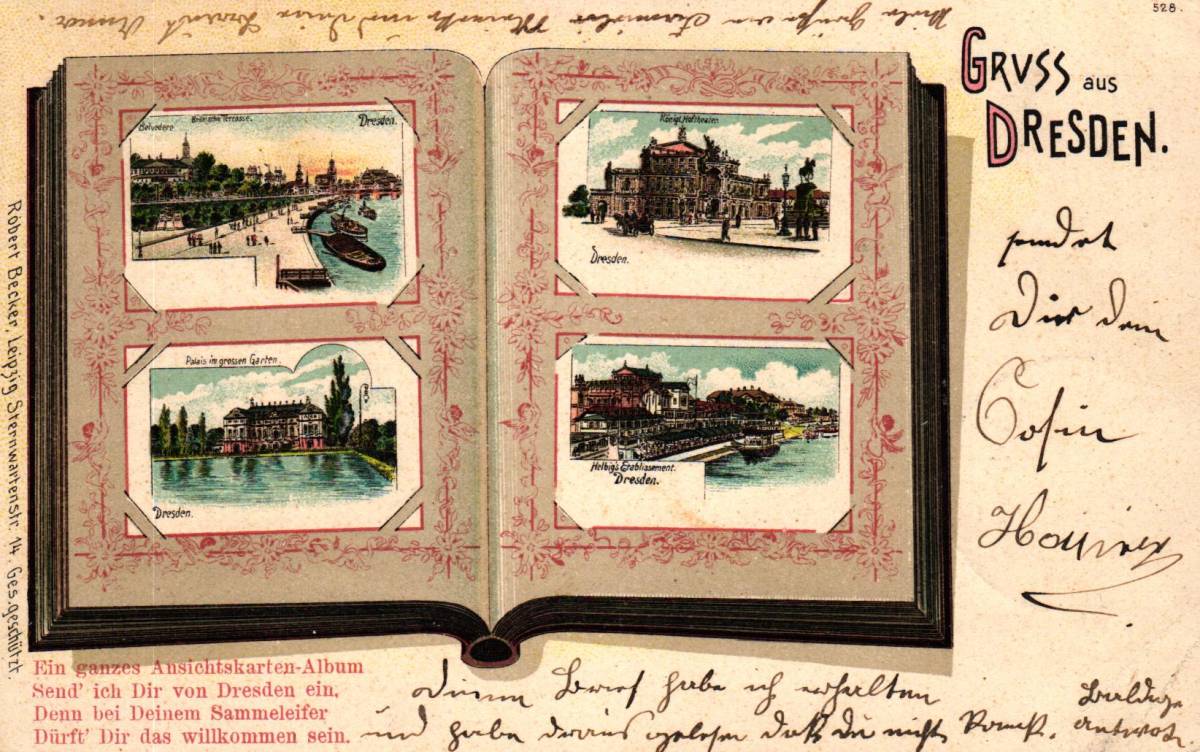 528.
GRUSS aus
DRESDEN.
Belvedere.
Brühlsche Terrasse.
Dresden.
Königl. Hoftheater.
Dresden.
Palais im grossen Garten.
Dresden.
Helbig's Etablissement.
Dresden.
sendet
Dir dein
Cosin
Robert Becker, Leipzig Sternwartenstr. 14. Ges. geschützt.
Ein ganzes Ansichtskarten-Album
Send' ich Dir von Dresden ein,
Denn bei Deinem Sammeleifer
Dürft' Dir das willkommen sein.
Deinen Brief habe ich erhalten
und habe draus gelesen daß du nicht kommst.
Baldige
Antwort.